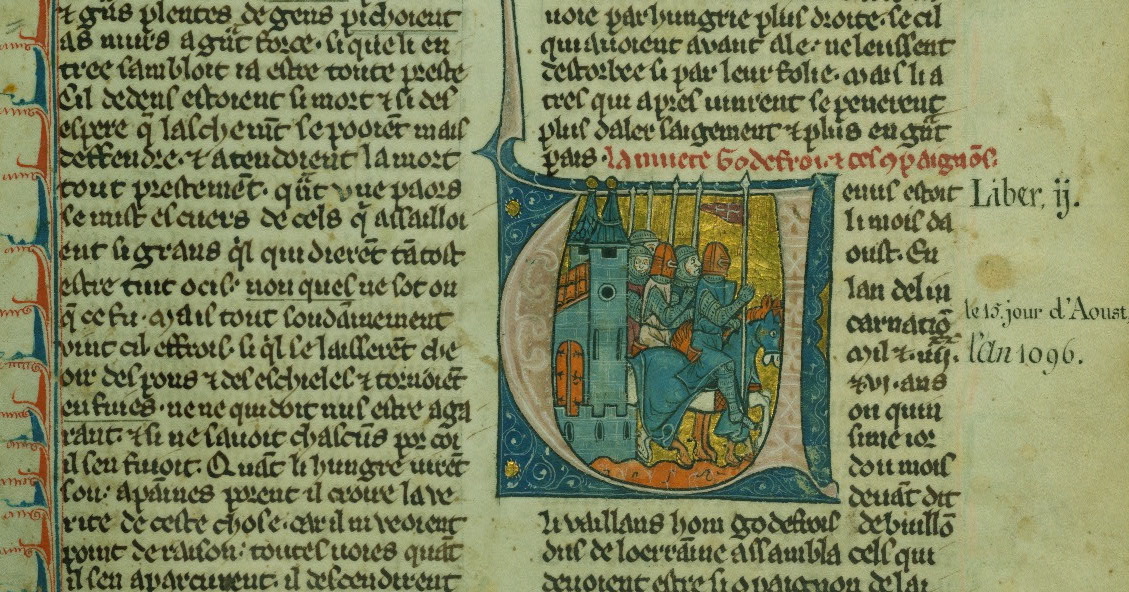 ⁊ gñs plentes de gens pichoient
as murs a gñt force · si que li en
tree sambloit ia estre toute preste
Cil dedens estoient si mort ⁊ si des
espere q̃ lascheme͂t se pooiẽt mais
deffendre · ⁊ atendoient la mort
tout prestemẽt · qñt vne paors
se mist es cuers de cels q̃ assailloi
ent si grans q̃l qui dierẽt tãtost
estre tuit ocis · non ques ne sot on
q̃ ce fu · Mais tout soudainement
vint cil effrois · si q̃l se laisserẽt che
oir des pons ⁊ des eschieles ⁊ tornoiẽt
en fuies · ne ne qui doit nus estre aga
rant · ⁊ si ne sauoit chascũs por coi
il sen fuioit · Quãt li hungre uirẽt
sou · apaines porent il croire la ve
rite de ceste chose · car il ni veoient
point de raison · toutes uoies quãt
il sen aparcurent · il descendirent
uoie par hungrie plus droite · se cil
qui auoient auant ale · ne leussent
destorbee si par leur folie · Mais li a
tres qui apres uinrent se penerent
plus daler saigement ⁊ plus en gñt
pais · la muete Godefroi · ⁊ ces 9paignõs ·
euus estoit
li mois da
oust · En
lan del in
carnatiõ
Mil ⁊ · iiij ·
⁊ vi · ans
ou quin
sime ior
dou mois
deuãt dit
li vaillans hom godefrois de buillõ
dus de locrãine assambla cels qui
deuoient estre si 9paignon de lai
Liber, ij.
le 15. jour d'Aoust
l'an 1096.